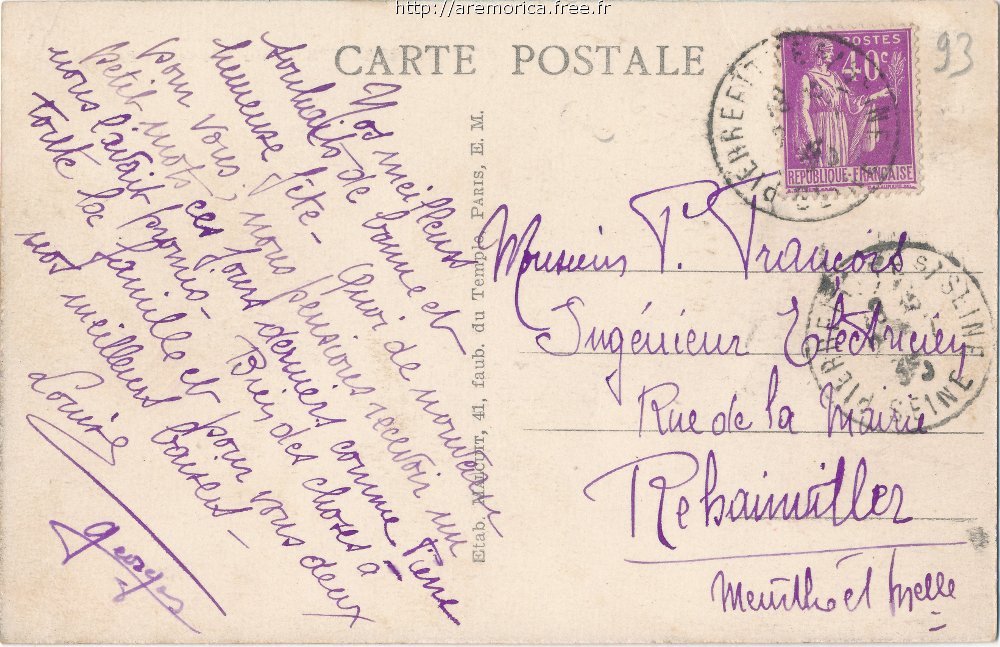 http://aremorica.free.fr
CARTE POSTALE
POSTES
40c
REPUBLIQUE-FRANÇAISE
93
PIERREFITTE
PIERREFITTE S/ SEINE
SEINE
Etab. MALCUIT, 41, faub. du Temple PARIS, E. M.
Nos meilleurs
souhaits de bonne et
heureuse fête - Quoi de nouveau
pour vous, nous pensions recevoir un
petit mots ces jours derniers comme Pierre
nous l'avait promis - Bien des choses à
toute la famille et pour vous deux
nos meilleurs baisers -
Louise
Georges
Monsieur P. François
Ingénieur Electricien
Rue de la Mairie
Rehainviller
Meurthe et Moselle